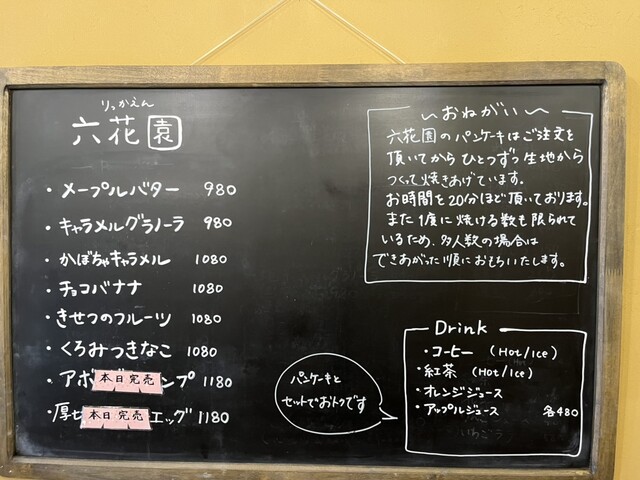 りっかえん
六花園
・メープルバター 980
・キャラメルグラノーラ 980
・かぼちゃキャラメル 1080
・チョコバナナ 1080
・きせつのフルーツ 1080
・くろみつきなこ 1080
・アボ 本日完売 ンプ 1180
・厚セ 本日完売 エッグ 1180
〜おねがい〜
六花園のパンケーキはご注文を
頂いてからひとつずつ生地から
つくって焼きあげています。
お時間を20分ほど頂いております。
また1度に焼ける数も限られて
いるため、多人数の場合は
できあがった順におもちいたします。
パンケーキと
セットでおトクです
Drink
・コーヒー (Hot/Ice)
・紅茶 (Hot/Ice)
・オレンジジュース
・アップルジュース 各480